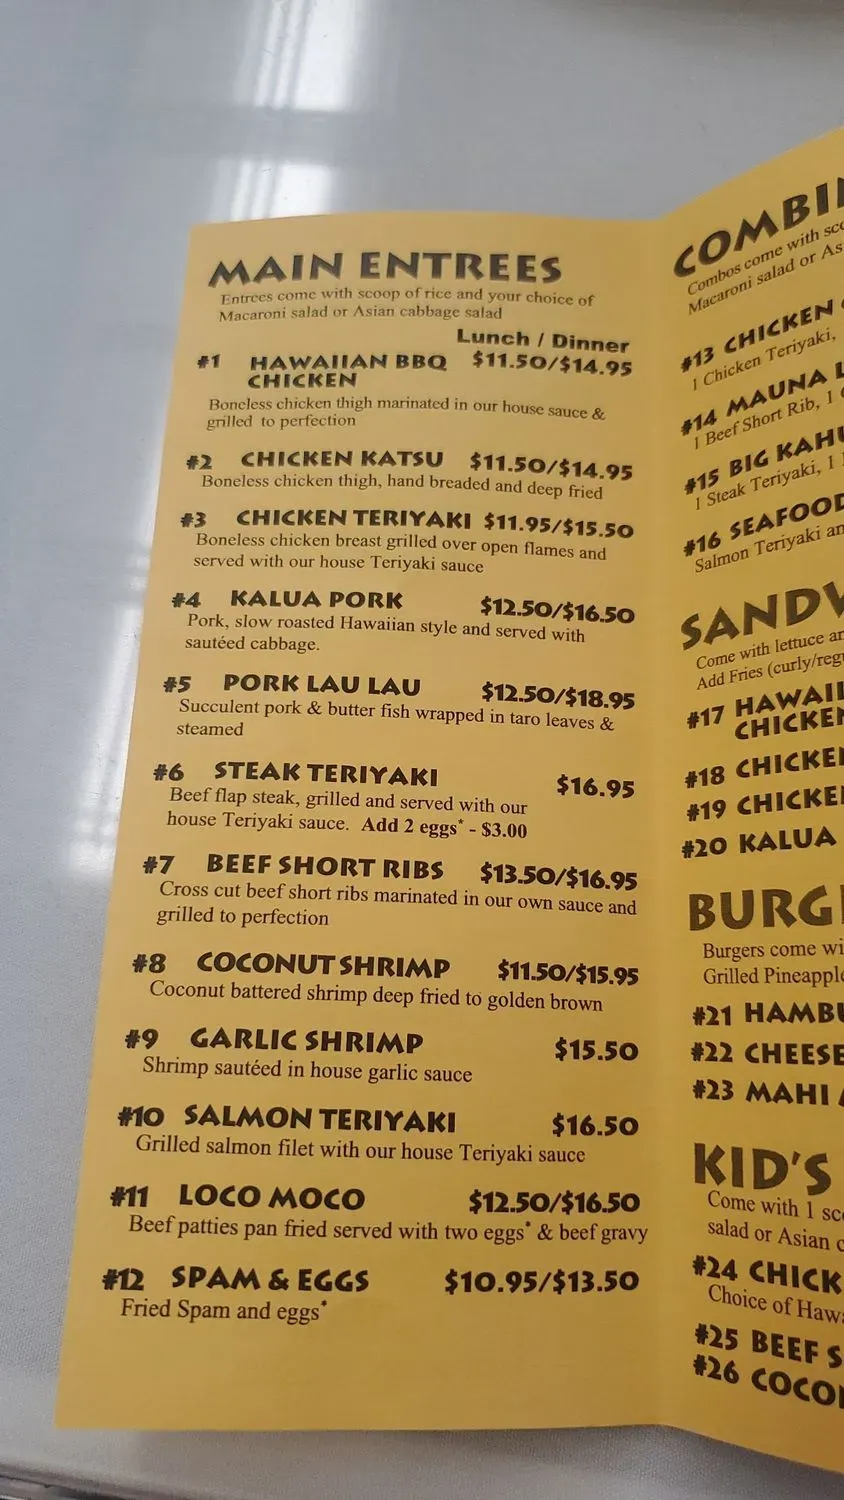 MAIN ENTREES
Entrees come with scoop of rice and your choice of
Macaroni salad or Asian cabbage salad
Lunch / Dinner
#1 HAWAIIAN BBQ $11.50/$14.95
CHICKEN
Boneless chicken thigh marinated in our house sauce &
grilled to perfection
#2 CHICKEN KATSU $11.50/$14.95
Boneless chicken thigh, hand breaded and deep fried
#3 CHICKEN TERIYAKI $11.95/$15.50
Boneless chicken breast grilled over open flames and
served with our house Teriyaki sauce
#4 KALUA PORK $12.50/$16.50
Pork, slow roasted Hawaiian style and served with
sautéed cabbage.
#5 PORK LAU LAU $12.50/$18.95
Succulent pork & butter fish wrapped in taro leaves &
steamed
#6 STEAK TERIYAKI $16.95
Beef flap steak, grilled and served with our
house Teriyaki sauce. Add 2 eggs* - $3.00
#7 BEEF SHORT RIBS $13.50/$16.95
Cross cut beef short ribs marinated in our own sauce and
grilled to perfection
#8 COCONUT SHRIMP $11.50/$15.95
Coconut battered shrimp deep fried to golden brown
#9 GARLIC SHRIMP $15.50
Shrimp sautéed in house garlic sauce
#10 SALMON TERIYAKI $16.50
Grilled salmon filet with our house Teriyaki sauce
#11 LOCO MOCO $12.50/$16.50
Beef patties pan fried served with two eggs* & beef gravy
#12 SPAM & EGGS $10.95/$13.50
Fried Spam and eggs*
Combos come with
Macaroni salad or
#13 CHICKEN
1 Chicken Teriyaki,
#14 MAUNA
1 Beef Short Rib, 1
#15 BIG
1 Steak Teriyaki, 1
#16 SEAFOOD
Salmon Teriyaki
Come with lettuce
Add Fries
#17
#18
#19
#20 KALUA
Burgers come
Grilled
#21
#22
#23 MAHI
KID'S
Come with 1
salad or Asian
#24
Choice of
#25 BEEF
#26